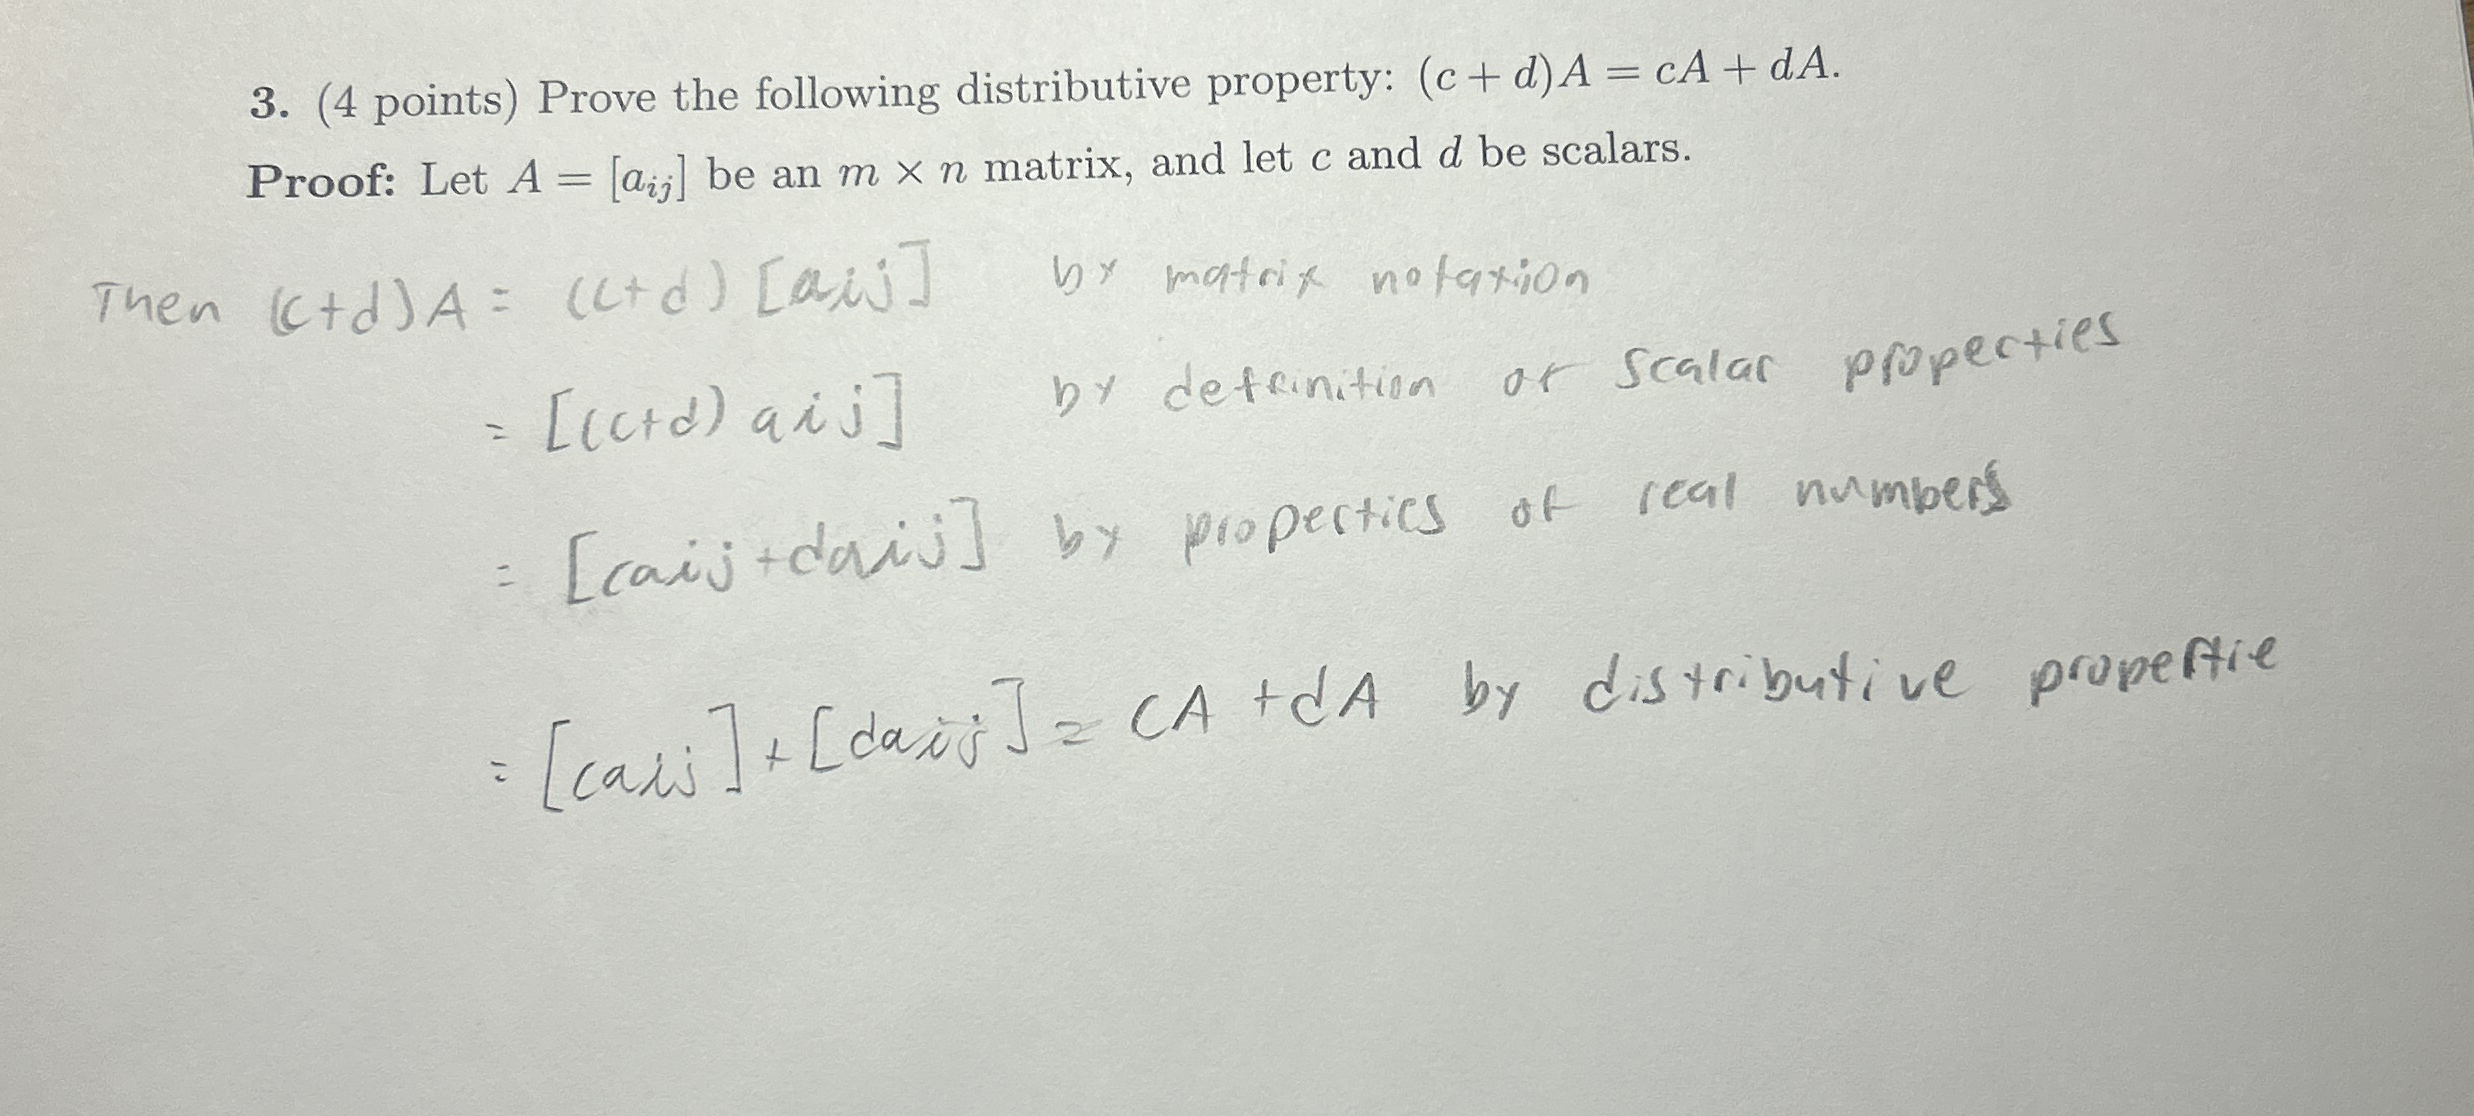 3. (4 points) Prove the following distributive property: (c + d)A = cA + dA.
Proof: Let A = [aij] be an m × n matrix, and let c and d be scalars.
Then (c+d)A = (c+d) [aij] by matrix notation
= [(c+d) aij] by deffinition of scalar properties
= [caij+daij] by properties of real numbers
= [caij] + [daij] = CA + dA by distributive propertie